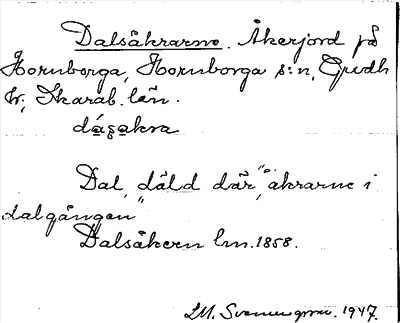 Dalsåkrarne. Åkerjord på
Hornborga, Hornborga s:n, Gudh
hr, Skarab. län.
dásakra
Dal, däld där, "åkrarne i
dalgången"
Dalsåkern lm. 1858.
1947.